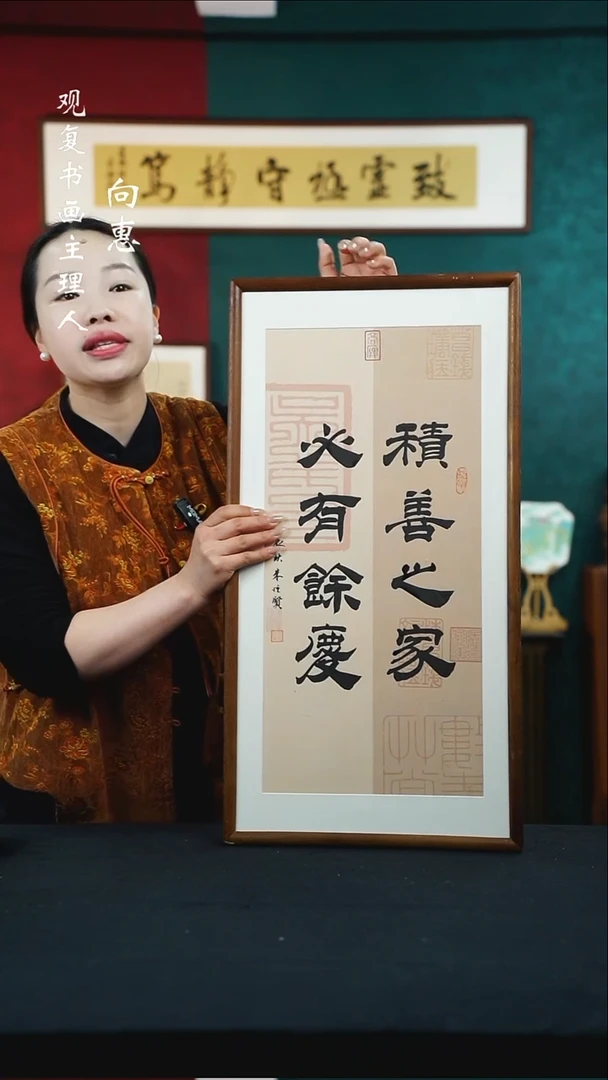 观复书画主理人
向惠
致虛極守靜篤
積善之家
必有餘慶